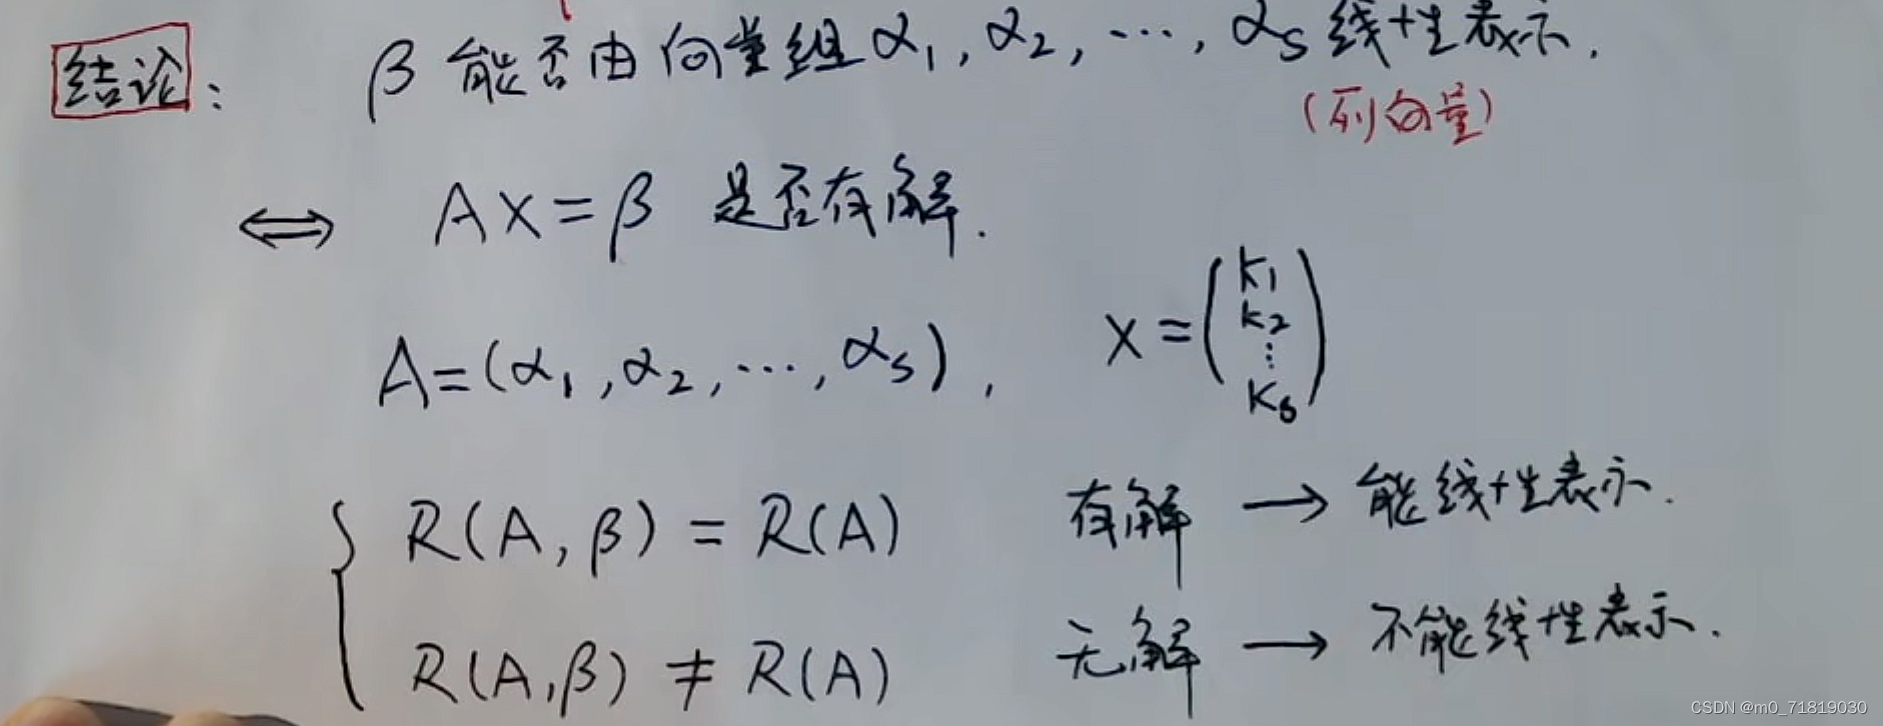 结论: β 能否由向量组 α₁, α₂, ⋯, αₛ 线性表示.
(列向量)
⟺ AX = β 是否有解.
A = (α₁, α₂, ⋯, αₛ), X = (k₁ k₂ ⋮ kₛ)
{ R(A, β) = R(A) 有解 → 能线性表示.
R(A, β) ≠ R(A) 无解 → 不能线性表示.
CSDN @m0_71819030